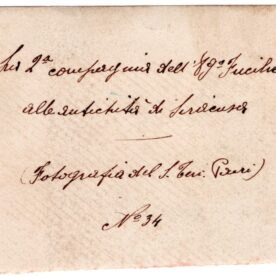 La 2ª compagnia dell' 89º Fucili
alle antichità di Siracusa
(Fotografia del S. Ten. Pauri)
Nº 34